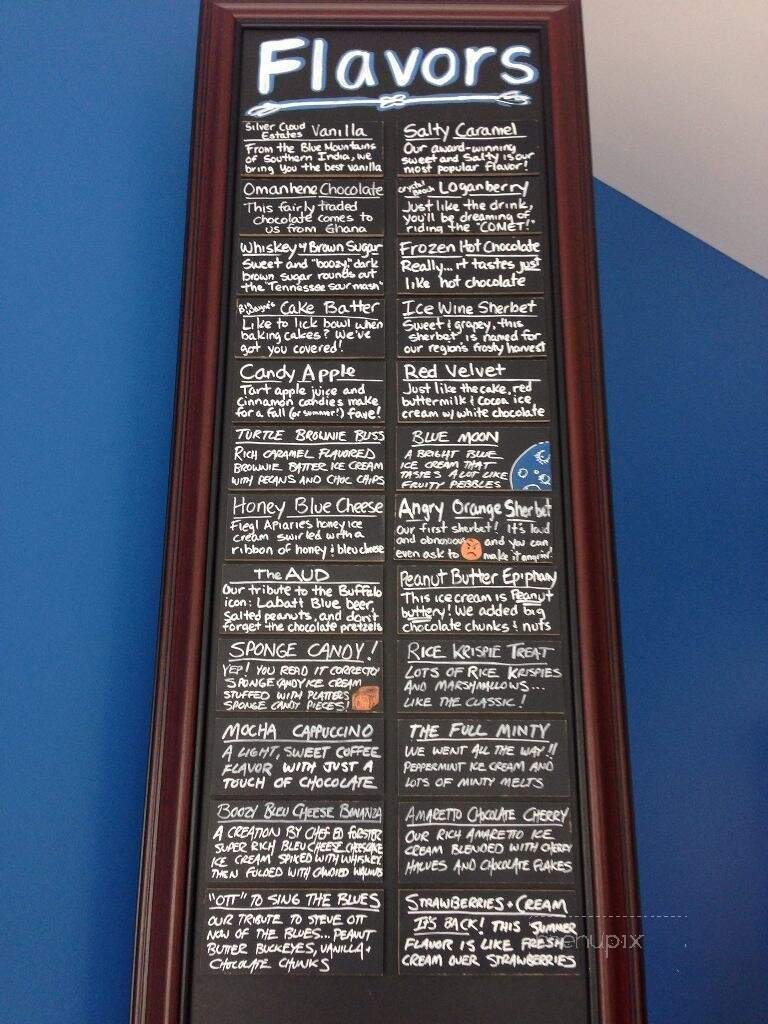 Flavors
Silver Cloud
Estates Vanilla
From the Blue Mountains
of Southern India, we
bring you the best vanilla
Salty Caramel
Our award-winning
sweet and salty is our
most popular flavor!
Omanhene Chocolate
This fairly traded
chocolate comes to
us from Ghana
Crystal
Beach Loganberry
Just like the drink,
you'll be dreaming of
riding the "COMET!"
Whiskey & Brown Sugar
Sweet and "boozy," dark
brown sugar rounds out
the "Tennessee sour mash"
Frozen Hot Chocolate
Really... it tastes just
like hot chocolate
Big
Wayne's Cake Batter
Like to lick bowl when
baking cakes? We've
got you covered!
Ice Wine Sherbet
Sweet & grapey, this
sherbet is named for
our region's frosty harvest
Candy Apple
Tart apple juice and
Cinnamon candies make
for a fall (or summer!) fave!
Red Velvet
Just like the cake, red
buttermilk & cocoa ice
cream w/ white chocolate
TURTLE BROWNIE BLISS
RICH CARAMEL FLAVORED
BROWNIE BATTER ICE CREAM
WITH PECANS AND CHOC CHIPS
BLUE MOON
A BRIGHT BLUE
ICE CREAM THAT
TASTES A LOT LIKE
FRUITY PEBBLES
Honey Blue Cheese
Fiegl Apiaries honey ice
cream swirled with a
ribbon of honey & bleu cheese
Angry Orange Sherbet
Our first sherbet! It's loud
and obnoxious and you can
even ask to make it angrier!
The AUD
Our tribute to the Buffalo
icon: Labatt Blue beer,
salted peanuts, and don't
forget the chocolate pretzels
Peanut Butter Epiphany
This ice cream is Peanut
buttery! We added big
chocolate chunks & nuts
SPONGE CANDY!
YEP! YOU READ IT CORRECTLY
SPONGE CANDY ICE CREAM
STUFFED WITH PLATTERS
SPONGE CANDY PIECES!
RICE KRISPIE TREAT
LOTS OF RICE KRISPIES
AND MARSHMALLOWS...
LIKE THE CLASSIC!
MOCHA CAPPUCCINO
A LIGHT, SWEET COFFEE
FLAVOR WITH JUST A
TOUCH OF CHOCOLATE
THE FULL MINTY
WE WENT ALL THE WAY!!
PEPPERMINT ICE CREAM AND
LOTS OF MINTY MELTS
BOOZY BLEU CHEESE BONANZA
A CREATION BY CHEF ED FORSTER
SUPER RICH BLEU CHEESE CHEESECAKE
ICE CREAM SPIKED WITH WHISKEY
THEN FOLDED WITH CANDIED WALNUTS
AMARETTO CHOCOLATE CHERRY
OUR RICH AMARETTO ICE
CREAM BLENDED WITH CHERRY
HALVES AND CHOCOLATE FLAKES
"OTT" TO SING THE BLUES
OUR TRIBUTE TO STEVE OTT
NOW OF THE BLUES... PEANUT
BUTTER BUCKEYES, VANILLA +
CHOCOLATE CHUNKS
STRAWBERRIES + CREAM
IT'S BACK! THIS SUMMER
FLAVOR IS LIKE FRESH
CREAM OVER STRAWBERRIES
menupix